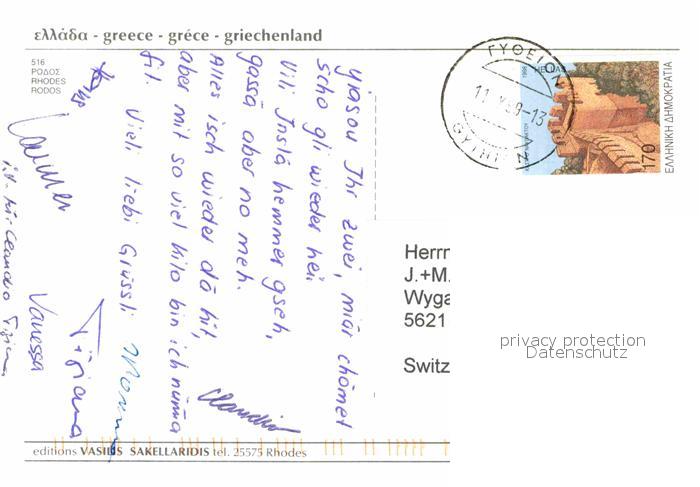 ελλάδα - greece - gréce - griechenland
516
ΡΟΔΟΣ
RHODES
RODOS
yiasou Ihr zwei, miär chömet
scho gli wieder hei.
Vili Inslä hemmer gseh,
gässä aber no meh.
Alles isch wieder dä hit,
aber mit so viel kilo bin ich nüma
fit. Vieli liebi Grüssli
Claudio
Tiziana
Vanessa
ΓΥΘΕΙΟΝ
GYTHION
HELLAS
1998
170
ΕΛΛΗΝΙΚΗ ΔΗΜΟΚΡΑΤΙΑ
Herrn
J.+M.
Wyga
5621
Switz
privacy protection
Datenschutz
editions VASILIS SAKELLARIDIS tel. 25575 Rhodes